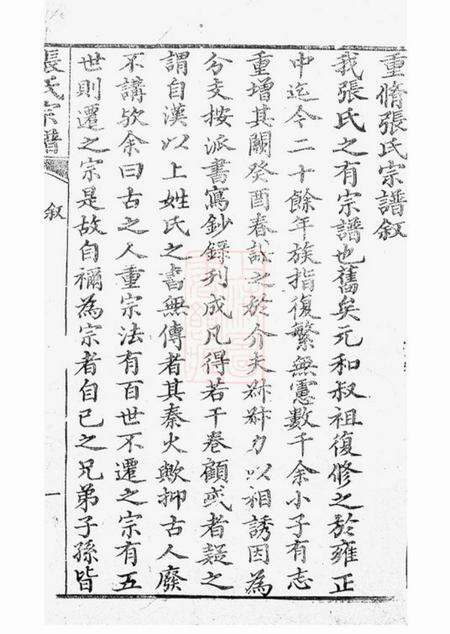 重脩張氏宗譜叙
我張氏之有宗譜也舊矣元和叔祖復修之於雍正
中迄今二十餘年族指復繁無慮數千余小子有志
重增其闕癸酉春試之於介夫
力以相誘因為
分支按派書寫鈔錄列成凡得若干卷顧或者疑之
謂自漢以上姓氏之書無傳者其秦火歟抑古人廢
不講欤余曰古之人重宗法有百世不遷之宗有五
世則遷之宗是故自禰為宗者自己之兄弟子孫皆
張氏宗譜
叙
一